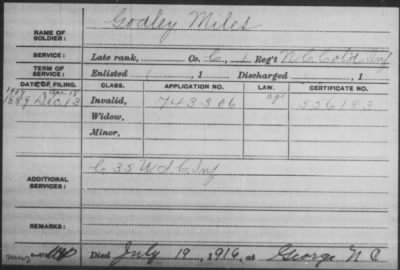 Godley Miles
NAME OF SOLDIER:
SERVICE: Late rank, Co. C, 1 Reg't N C Cold Inf
TERM OF SERVICE: Enlisted , 1 Discharged , 1
DATE OF FILING. CLASS. APPLICATION NO. LAW. CERTIFICATE NO.
1889 Dec 13 Invalid, 743306 556183
Widow,
Minor,
ADDITIONAL SERVICES: C 35 U S C Inf
REMARKS:
Died July 19, 1916, at George N C